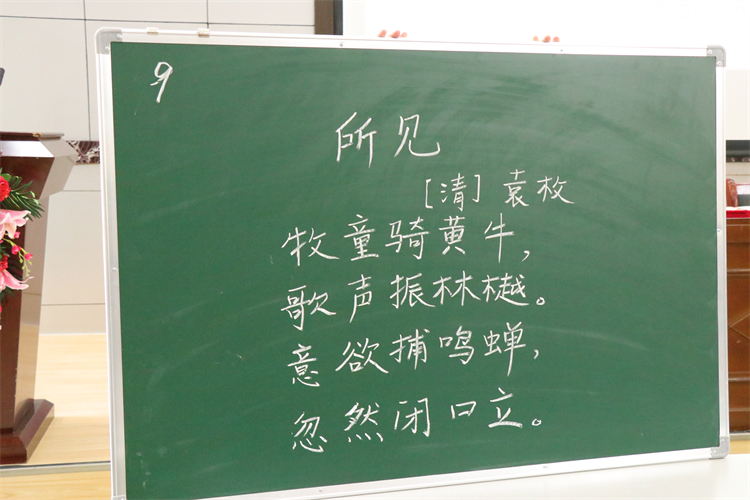 9
所见
[清] 袁枚
牧童骑黄牛,
歌声振林樾。
意欲捕鸣蝉,
忽然闭口立。